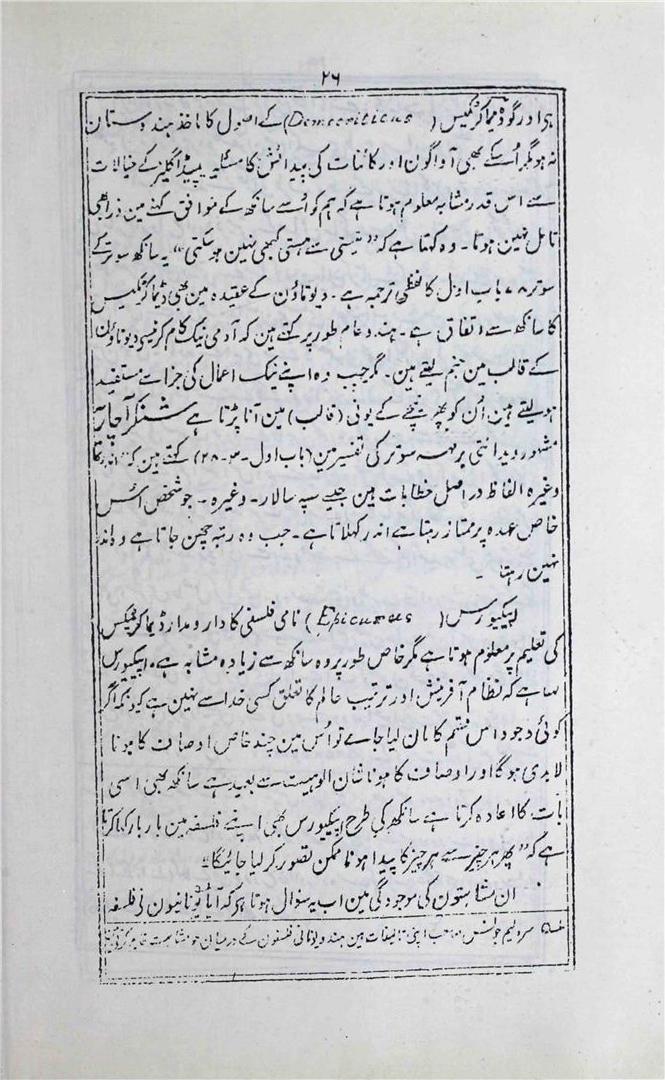 ۲۶
ہوا درگو ڈیماکرٹیکس (Democriticus) کے اصول کا ماخذ ہندوستان
نہ ہو مگر اُسکے بھی آواگون اور کائنات کی پیدائش کا مسئلہ کے خیالات
سے اس قدر مشابہ معلوم ہوتا ہے کہ ہم کو اُسے سانکھ کے موافق کہنے مین ذرا بھی
تامل نہین ہوتا۔ وہ کہتا ہے کہ ”نیستی سے ہستی کبھی نہین ہوسکتی“ یہ سانکھ سوتر کے
سوتر ۷۸ باب اول کا لفظی ترجمہ ہے۔ دیوتاؤن کے عقیدہ مین بھی ڈیماکرٹیکس
کا سانکھ سے اتفاق ہے۔ ہندو عام طور پر کہتے ہین کہ آدمی نیک کام کرنیسے دیوتاؤن
کے قالب مین جنم لیتے ہین۔ مگر جب وہ اپنے نیک اعمال کی جزا سے مستفید
ہولیتے ہین اُن کو پھر نیچے کے یونی (قالب) مین آنا پڑتا ہے شنکر آچاریہ
مشہور ویدانتی برہمہ سوتر کی تفسیر مین (باب اول۔ ۳۔ ۲۸) کہتے ہین کہ ”
وغیرہ الفاظ در اصل خطابات ہین جیسے سپہ سالار۔ وغیرہ۔ جو شخص اُس
خاص عہدہ پر ممتاز رہتا ہے اندر کہلاتا ہے۔ جب وہ رتبہ چھن جاتا ہے وہ اندر
نہین رہتا۔
ایپکیورس (Epicurus) نامی فلسفی کا دار و مدار ڈیماکرٹیکس
کی تعلیم پر معلوم ہوتا ہے مگر خاص طور پر وہ سانکھ سے زیادہ مشابہ ہے۔ ایپکیورس
کہتا ہے کہ نظام آفرینش اور ترتیب عالم کا تعلق کسی خدا سے نہین ہے کیونکہ اگر
کوئی وجود اس قسم کا مان لیا جاے تو اُس مین چند خاص اوصاف کا ہونا
لابدی ہوگا اور اوصاف کا ہونا شان الوہیت سے بعید ہے سانکھ بھی اسی
بات کا اعادہ کرتا ہے سانکھ کی طرح ایپکیورس بھی اپنے فلسفہ مین بار بار کہا کرتا
ہے کہ ”پھر ہر چیز سے ہر چیز کا پیدا ہونا ممکن تصور کر لیا جائیگا“۔
ان مشابہتون کی موجودگی مین اب یہ سوال ہوتا ہے کہ آیا یونانیون نے فلسفہ
سر ولیم جونس اپنی تالیفات مین ہندو یونانی فلسفون کے درمیان جو مشابہت